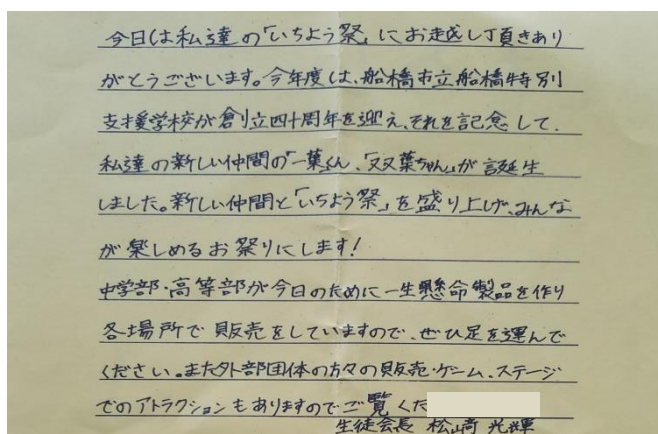 今日は私達の「いちよう祭」にお越し頂きあり
がとうございます。今年度は、船橋市立船橋特別
支援学校が創立四十周年を迎え、それを記念して、
私達の新しい仲間の「一葉くん、「双葉ちゃん」が誕生
しました。新しい仲間と「いちよう祭」を盛り上げ、みんな
が楽しめるお祭りにします!
中学部・高等部が今日のために一生懸命製品を作り
各場所で販売をしていますので、ぜひ足を運んで
ください。また外部団体の方々の販売・ゲーム、ステージ
でのアトラクションもありますのでご覧くだ
生徒会長 松﨑 光輝